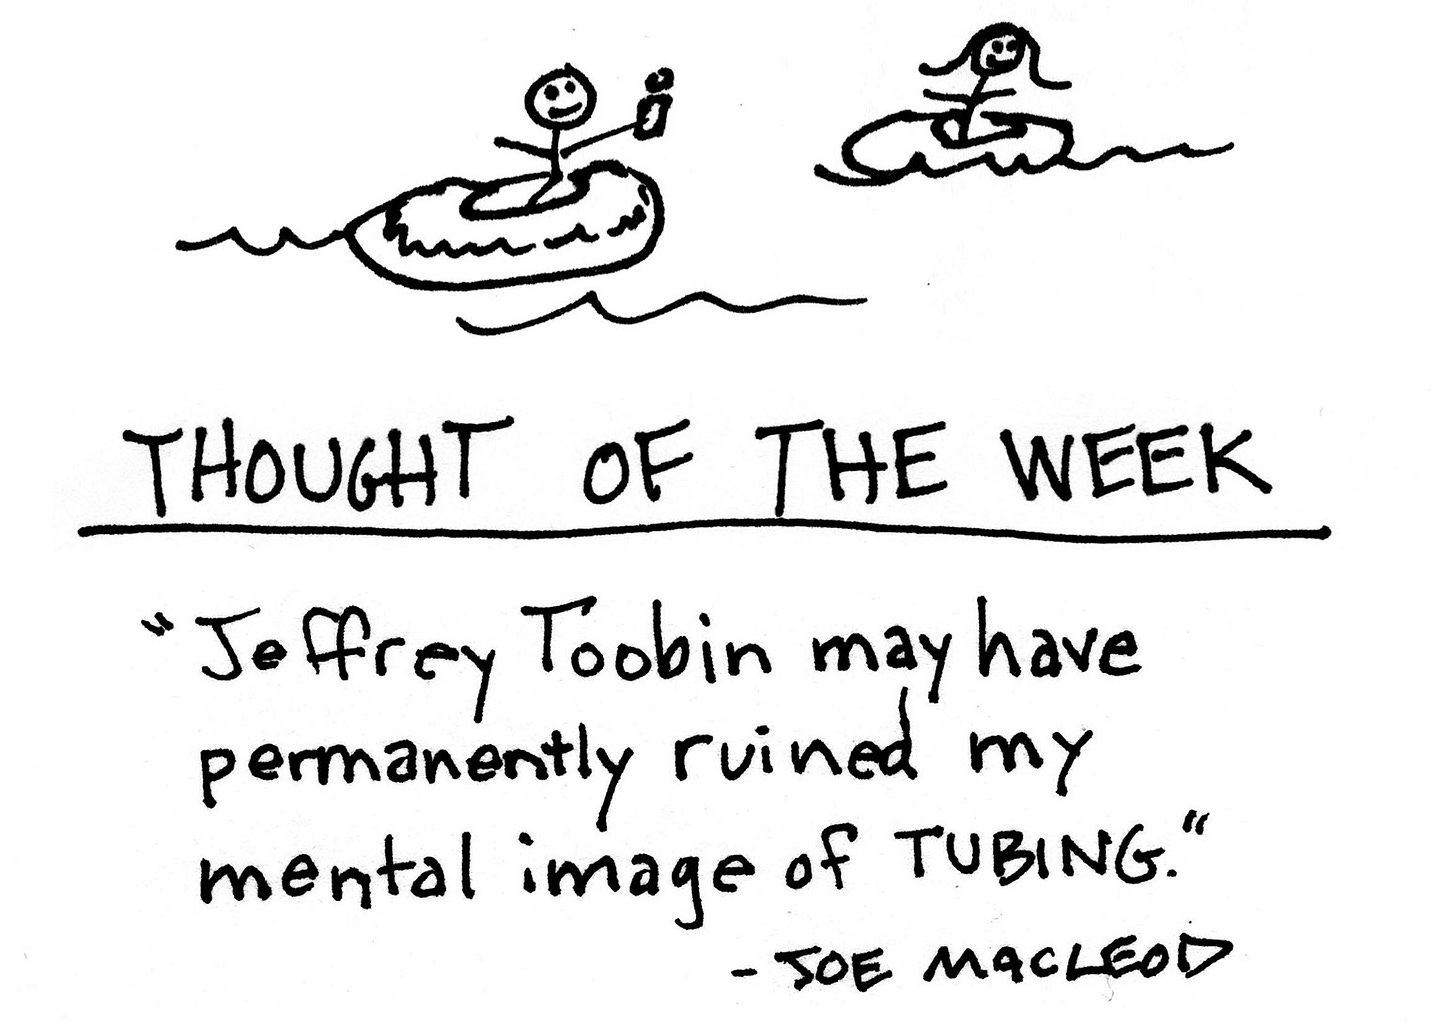 THOUGHT OF THE WEEK
"Jeffrey Toobin may have
permanently ruined my
mental image of TUBING."
- JOE MacLEOD